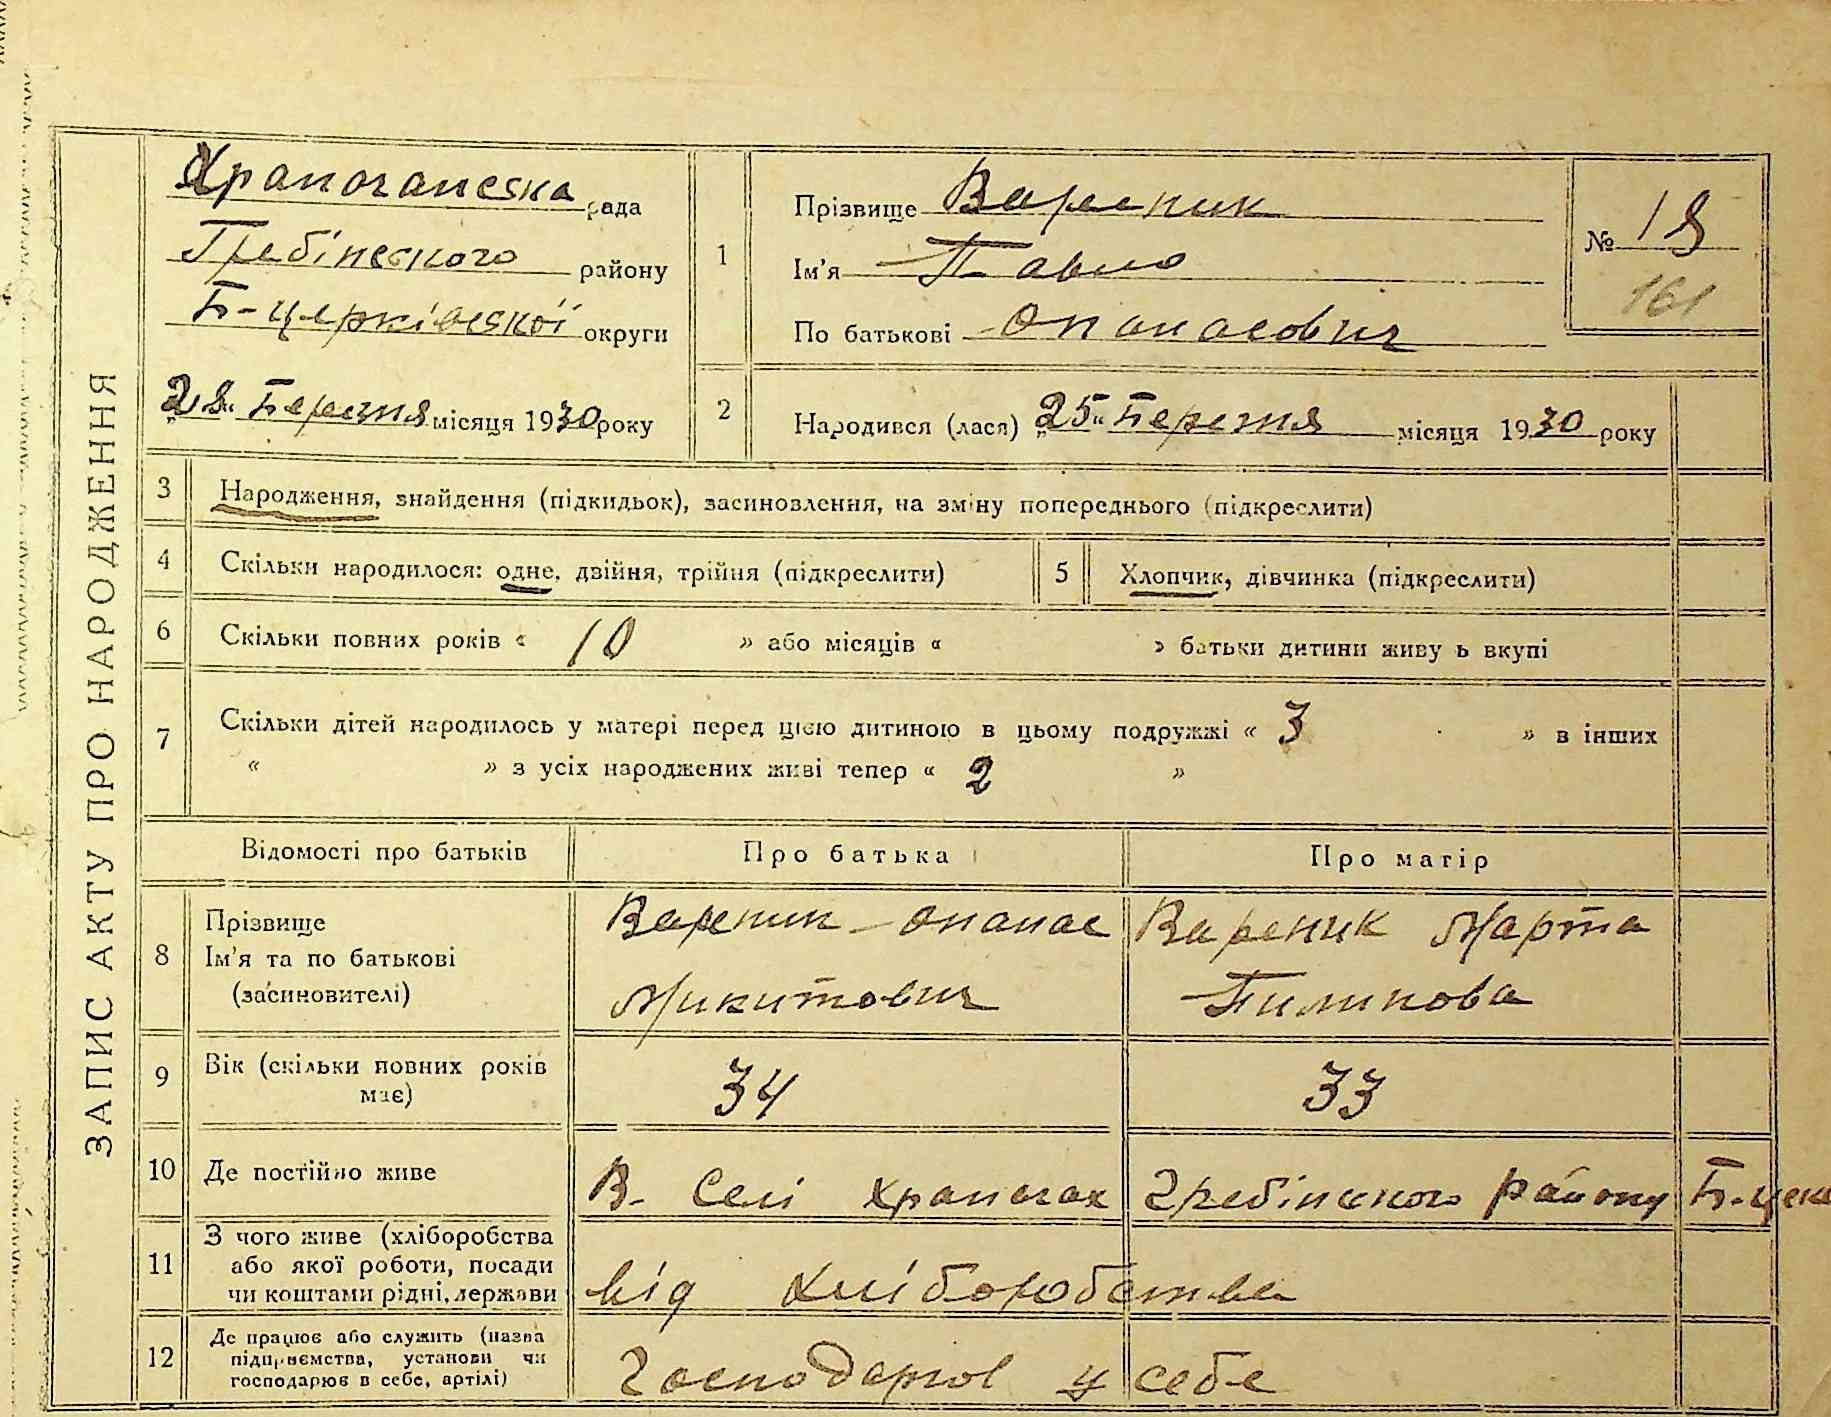 ЗАПИС АКТУ ПРО НАРОДЖЕННЯ
Храпачанська рада
Гребінського району
Б-церківської округи
„28“ Березня місяця 1930 року
1
Прізвище Вареник
Ім'я Павло
По батькові Опанасович
№ 18
161
2
Народився (лася) „25“ Березня місяця 1930 року
3 Народження, знайдення (підкидьок), засиновлення, на зміну попереднього (підкреслити)
4 Скільки народилося: одне, двійня, трійня (підкреслити)
5 Хлопчик, дівчинка (підкреслити)
6 Скільки повних років « 10 » або місяців « » батьки дитини живу ь вкупі
7 Скільки дітей народилось у матері перед цією дитиною в цьому подружжі « 3 » в інших
« » з усіх народжених живі тепер « 2 »
Відомості про батьків Про батька Про матір
8 Прізвище
Ім'я та по батькові
(засиновителі)
Вареник Опанас
Микитович
Вареник Марта
Пилипова
9 Вік (скільки повних років
має)
34 33
10 Де постійно живе В. Селі Храпачах Гребінського району Б-церк
11 З чого живе (хліборобства
або якої роботи, посади
чи коштами рідні, держави
від хліборобства
12 Де працює або служить (назва
підприємства, установи чи
господарює в себе, артілі)
Господарює у себе